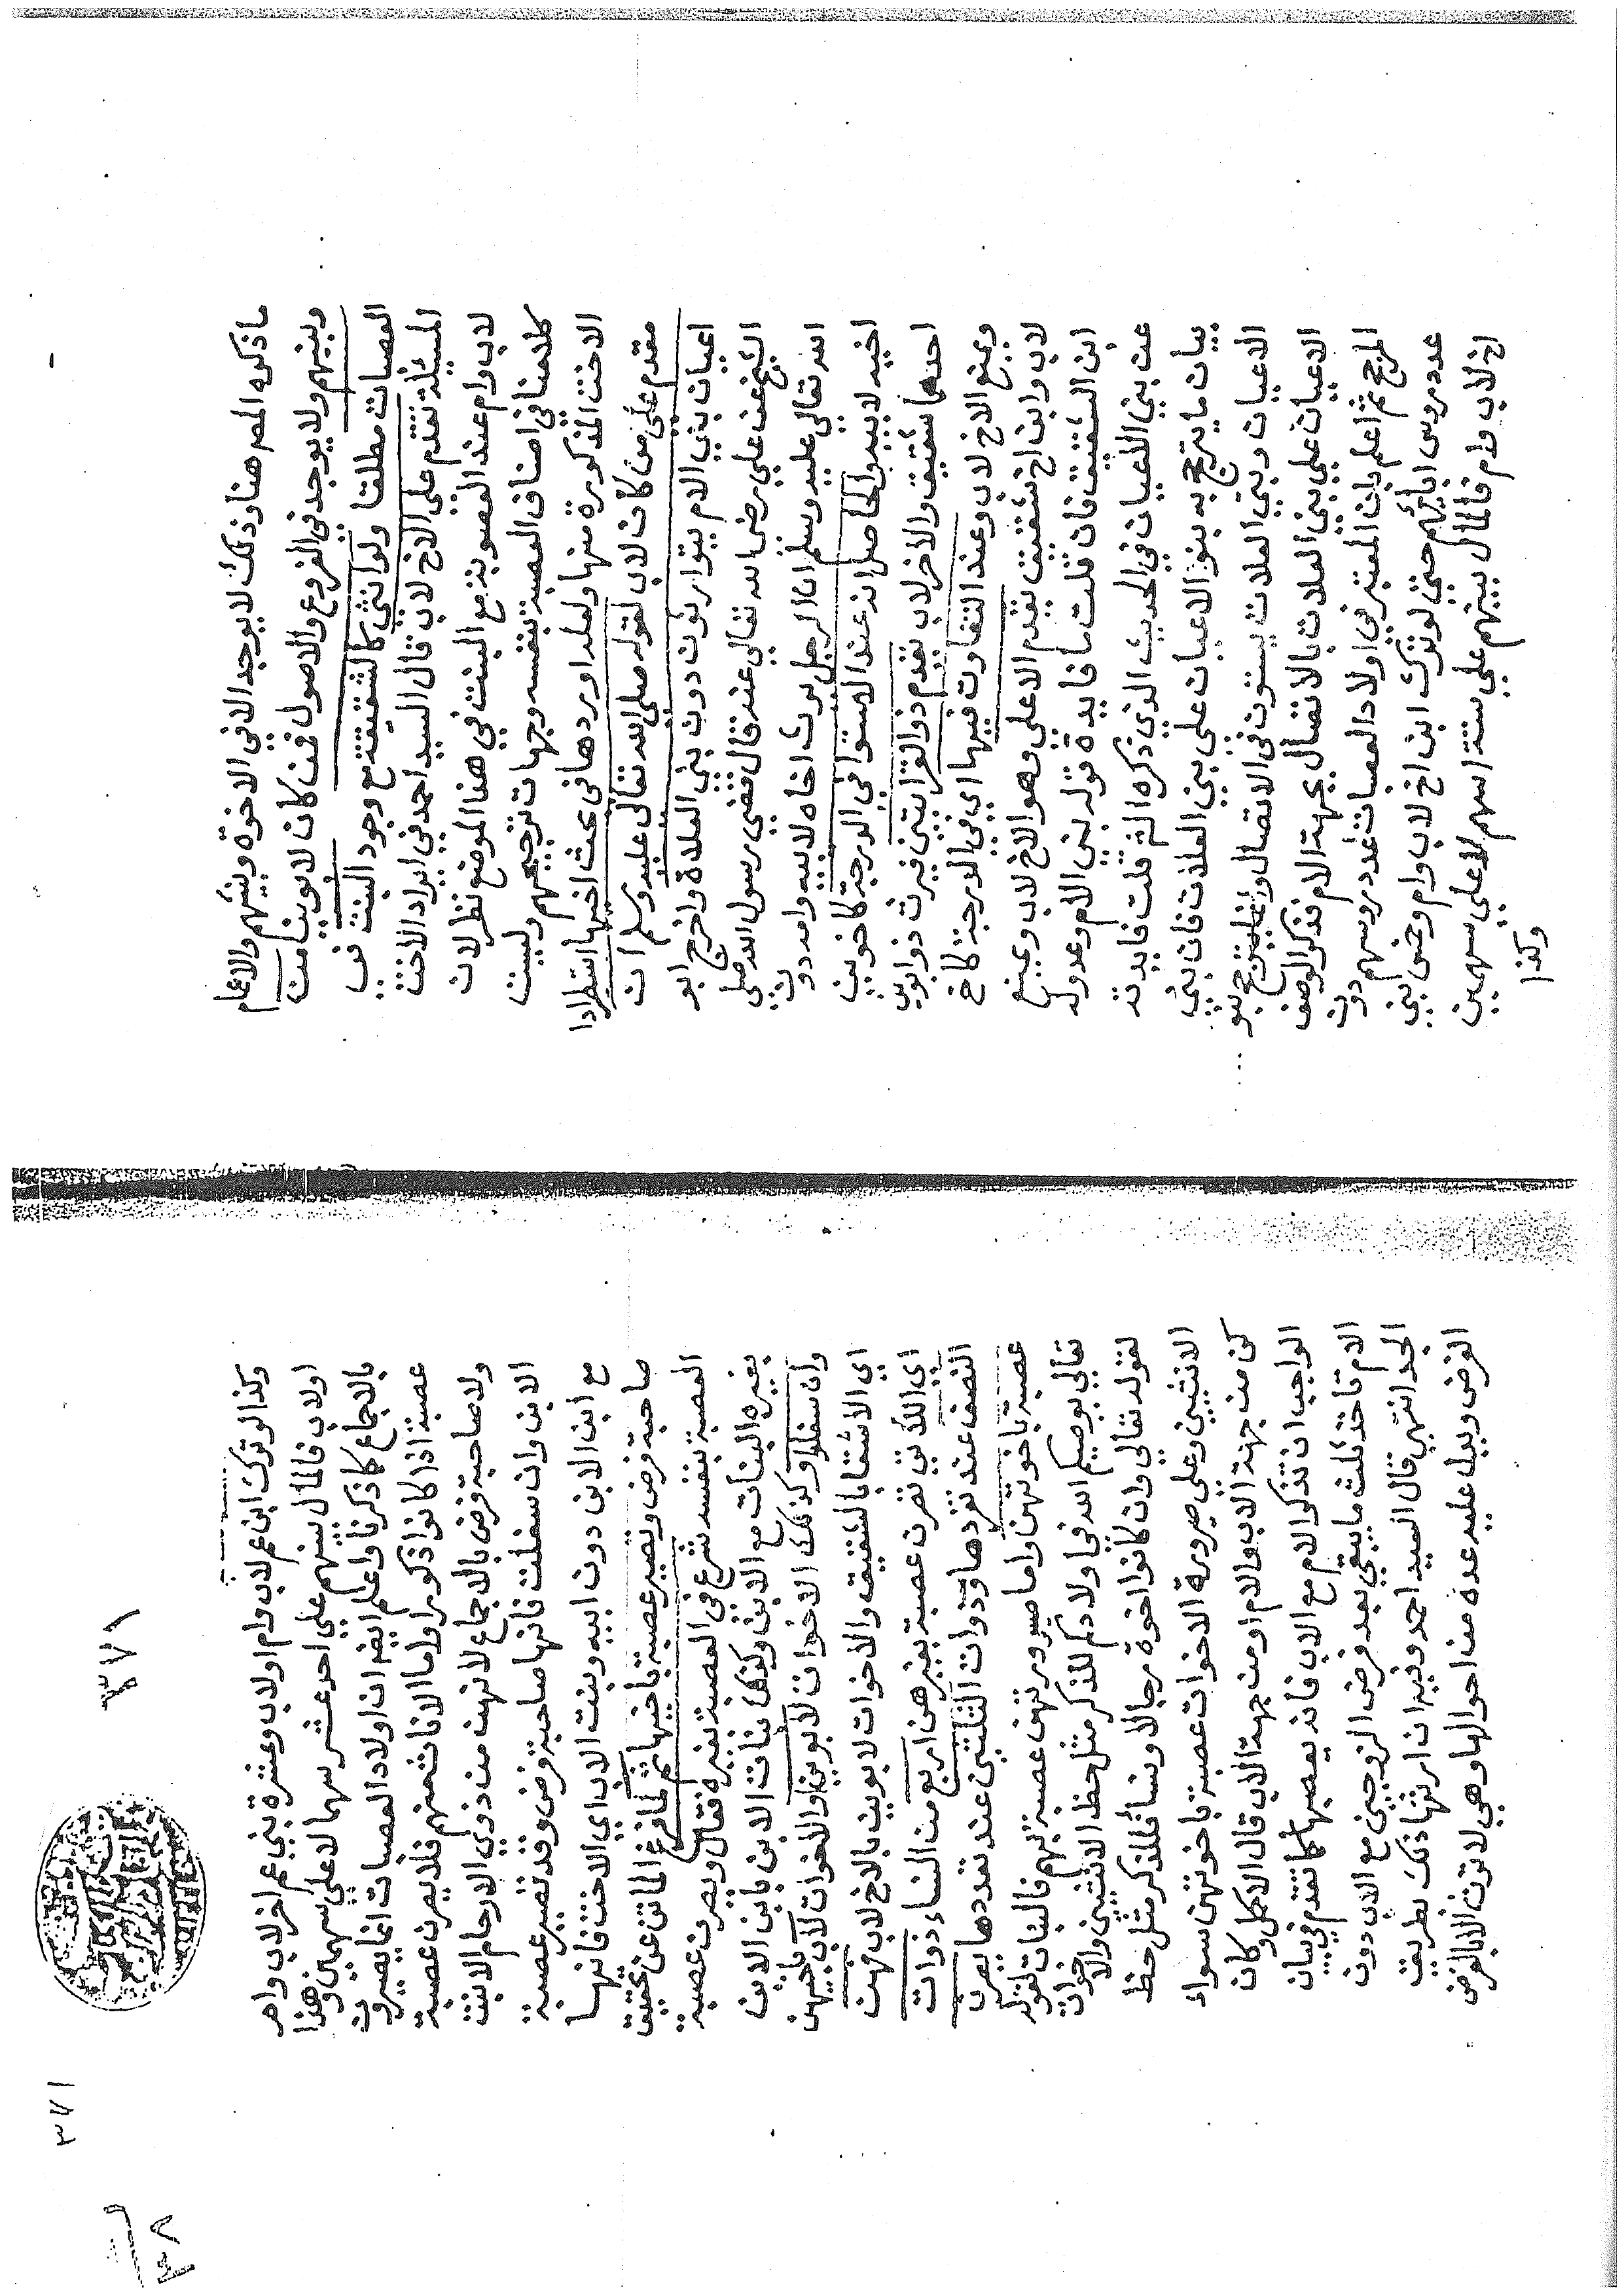 ما ذكره المصر هنا وذلك لا يوجد الا في الاخوة وبنيهم والاعمام
وبنيهم ولا يوجد في الفروع والاصول فمن كان لابوين من
العصبات مطلقا ولو انثى كالشقيقة مع وجود البنت في
المسئلة تقدم على الاخ لاب قال السيد احمد في ايراد الاخت
لاب وام عند العصوبة مع البنت في هذا الموضع نظر لان
كلامنا في اصناف العصبة بنفسه وجهات ترجيحهم وليست
الاخت المذكورة منها ولعله اوردها في بحث اخيها استطرادا
مقدم على من كان لاب لقوله صلى الله تعالى عليه وسلم ان
اعيان بني الام يتوارثون دون بني العلاة واخرج ابو
الشيخ عن علي رضي الله تعالى عنه قال قضى رسول الله صلى
الله تعالى عليه وسلم ان الرجل يرث اخاه لابيه وامه دون
اخيه لابيه والحاصل انه عند الاستوا في الدرجة كاخوين
احدهما شقيق والاخر لاب يقدم ذو القرابتين فيرث ذو ابوين
وعند التفاوت فيها اي في الدرجة كاخ
ويمنع الاخ لاب وعند
لاب وابن اخ شقيق يقدم الاعلى وهو الاخ لاب ويمنع
ابن الشقيق فان قلت ما فايدة قوله بني الام وعدوله
عن بني الاعيان في الحديث الذي ذكره الش قلت فايدته
بيان ما يترجح به بنوا الاعيان على بني العلات فان بني
الاعيان وبني العلات يستوون في الاتصال وانما يترجح بنو
الاعيان على بني العلات بالاتصال بجهة الام فذكر الوصف
المرجح ثم اعلم بان المعتبر في اولاد العصبات عدد روسهم دون
عدد روس ابائهم حتى لو ترك ابن اخ لاب وام وخمس بني
اخ لاب وام فالمال بينهم على ستة اسهم لا على سهمين
وكذا
٣٧١
٣٧١
وكذا لو ترك ابن عم لاب وام او لاب وعشرة بني عم اخر لاب وام
او لاب فالمال بينهم على احد عشر سهما لا على سهمين وهذا
بالاجماع كما ذكرنا واعلم ايضا ان اولاد العصبات انما يصيرون
عصبة اذا كانوا ذكورا واما الاناث منهم فلا يصرن عصبة
ولا صاحبة فرض بالاجماع لانهن من ذوي الارحام الا بنت
الابن وان سفلت فانها صاحبة فرض وقد تصير عصبة
مع ابن الابن دون ابيه وبنت الاب اي الاخت فانها
صاحبة فرض وتصير عصبة باخيها ثم لما فرغ الماتن عن تحقيق
العصبة بنفسه شرع في العصبة بغيره فقال ويصرن عصبة
بغيره البنات مع الابن وكذا بنات الابن بابن الابن
وان سفلوا وكذلك الاخوات لابوين او الاخوات لاب باخيهن
اي الاشقا بالشقيق والاخوات لابوين بالاخ لاب مهن
اي اللاتي تصرن عصبة بغيرهن اربع من النساء ذوات
النصف عند تفردها وذوات الثلثين عند تعددها يصرن
عصبة باخوتهن واما صيرورتهن عصبة بهم فالبنات لقوله
تعالى يوصيكم الله في اولادكم للذكر مثل حظ الانثيين والاخوات
لقوله تعالى وان كانوا اخوة رجالا ونساء فللذكر مثل حظ
الانثيين وعلى صيرورة الاخوات عصبة باخوتهن سواء
كن من جهة الاب والام او من جهة الاب قال الاكمل وكان
الواجب ان تذكر الام مع الاب فانه يعصبها لما تقدم في بيان
الام تاخذ ثلث ما يبقى بعد فرض الزوجين مع الاب دون
الجد انتهى قال السيد احمد وفيه ان ارثها ذلك بطريق
الفرض ويدل عليه عده من احوالها وهي لا ترث الا بالفرض